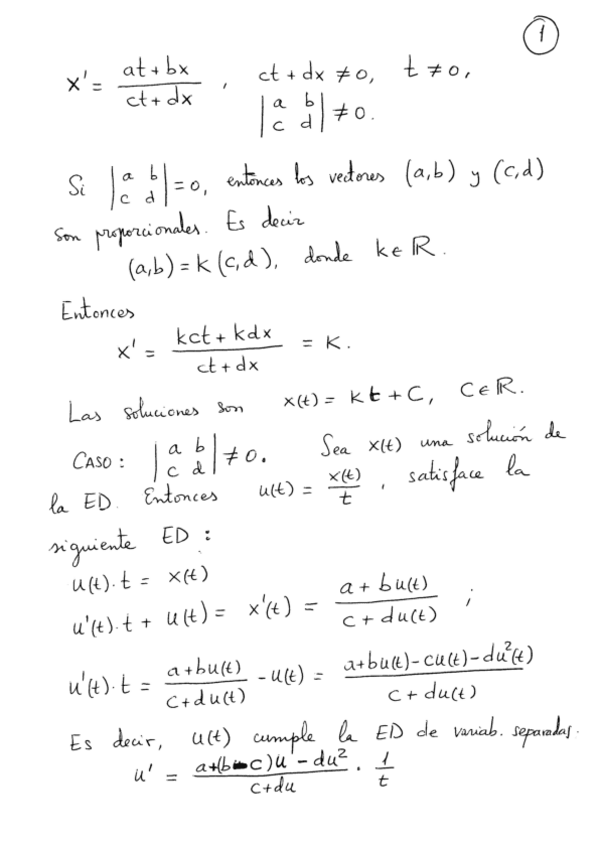 1
x' = (at + bx)/(ct + dx) , ct + dx ≠ 0, t ≠ 0,
|a b; c d| ≠ 0.
Si |a b; c d| = 0, entonces los vectores (a,b) y (c,d)
son proporcionales. Es decir
(a,b) = k (c,d), donde k ∈ ℝ.
Entonces
x' = (kct + kdx)/(ct + dx) = K.
Las soluciones son x(t) = kt + C, C ∈ ℝ.
CASO: |a b; c d| ≠ 0. Sea x(t) una solución de
la ED. Entonces u(t) = x(t)/t , satisface la
siguiente ED :
u(t).t = x(t)
u'(t).t + u(t) = x'(t) = (a + bu(t))/(c + du(t)) ;
u'(t).t = (a+bu(t))/(c+du(t)) - u(t) = (a+bu(t)-cu(t)-du²(t))/(c + du(t))
Es decir, u(t) cumple la ED de variab. separadas.
u' = (a+(b-c)u - du²)/(c+du) . 1/t